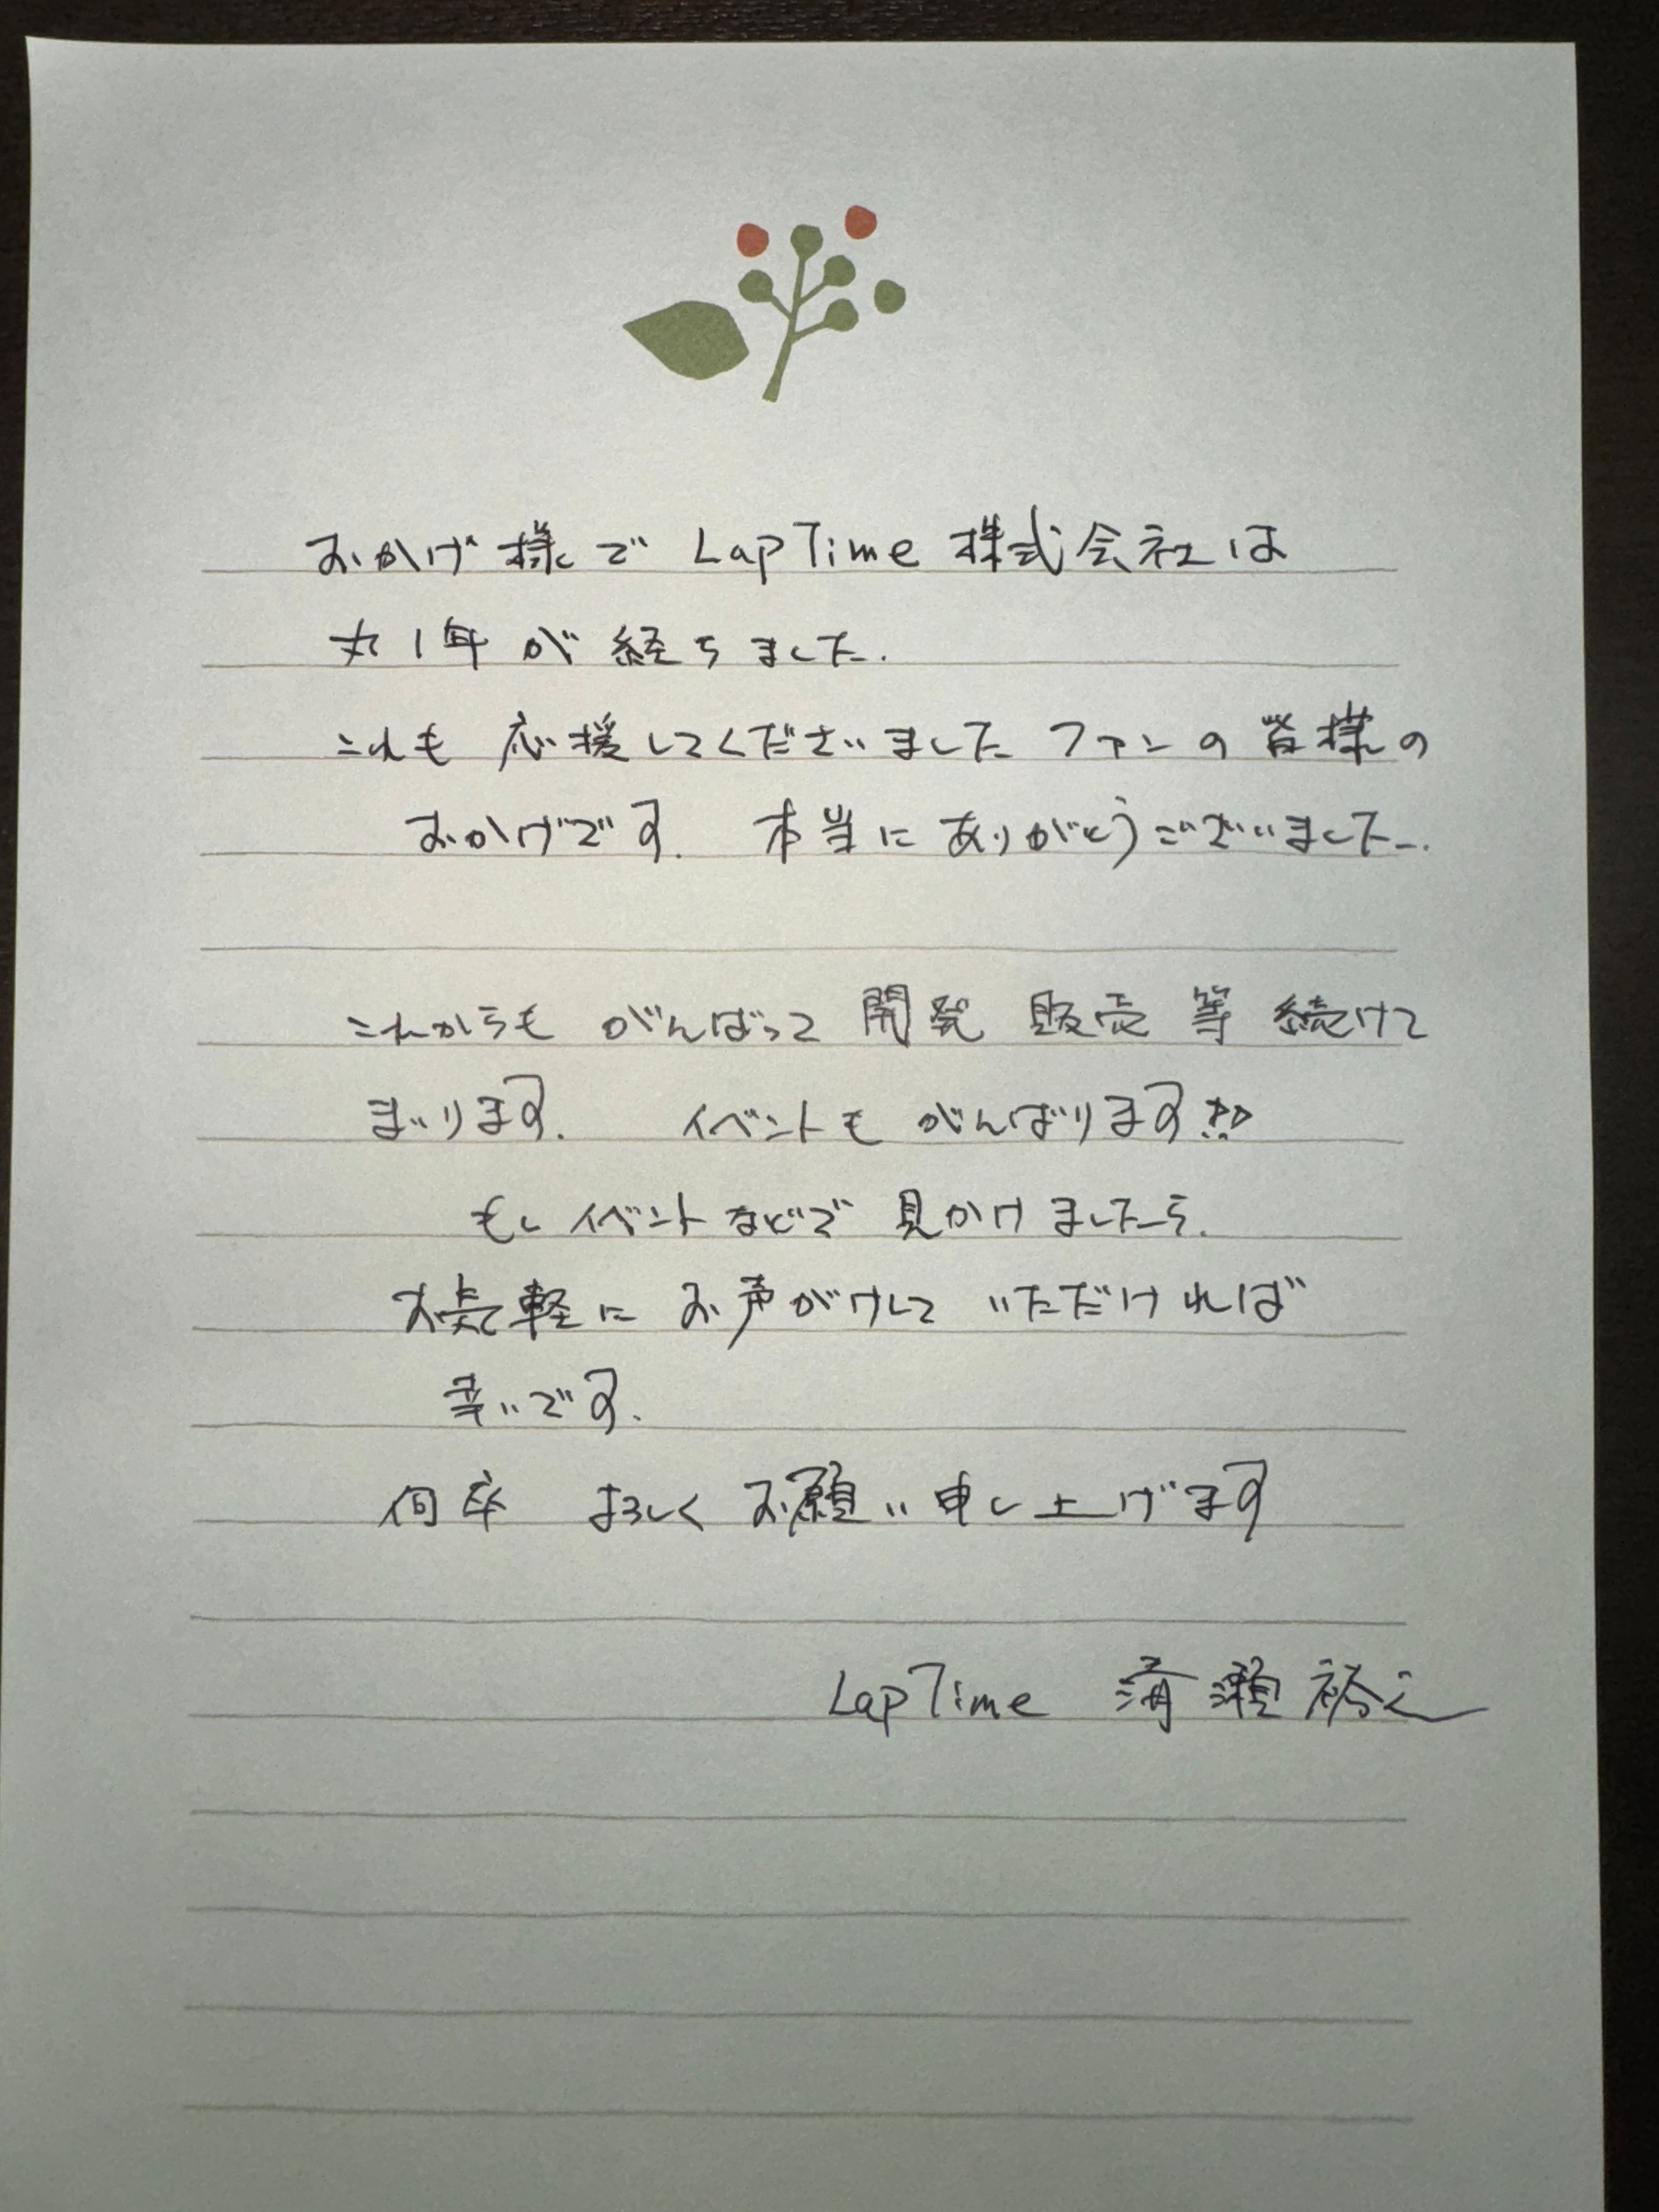 おかげ様で LapTime 株式会社は
丸1年が経ちました.
これも 応援してくださいました ファンの皆様の
おかげです. 本当にありがとうございました.
これからも がんばって 開発 販売 等 続けて
まいります. イベントも がんばります!!
もし イベントなどで 見かけましたら.
お気軽に お声がけして いただければ
幸いです.
何卒 よろしく お願い申し上げます
LapTime 瀬 裕之